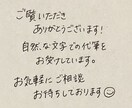 ご覧いただき
ありがとうございます!
自然な文字での代筆を
お受けしています。
お気軽にご相談
お待ちしております☺